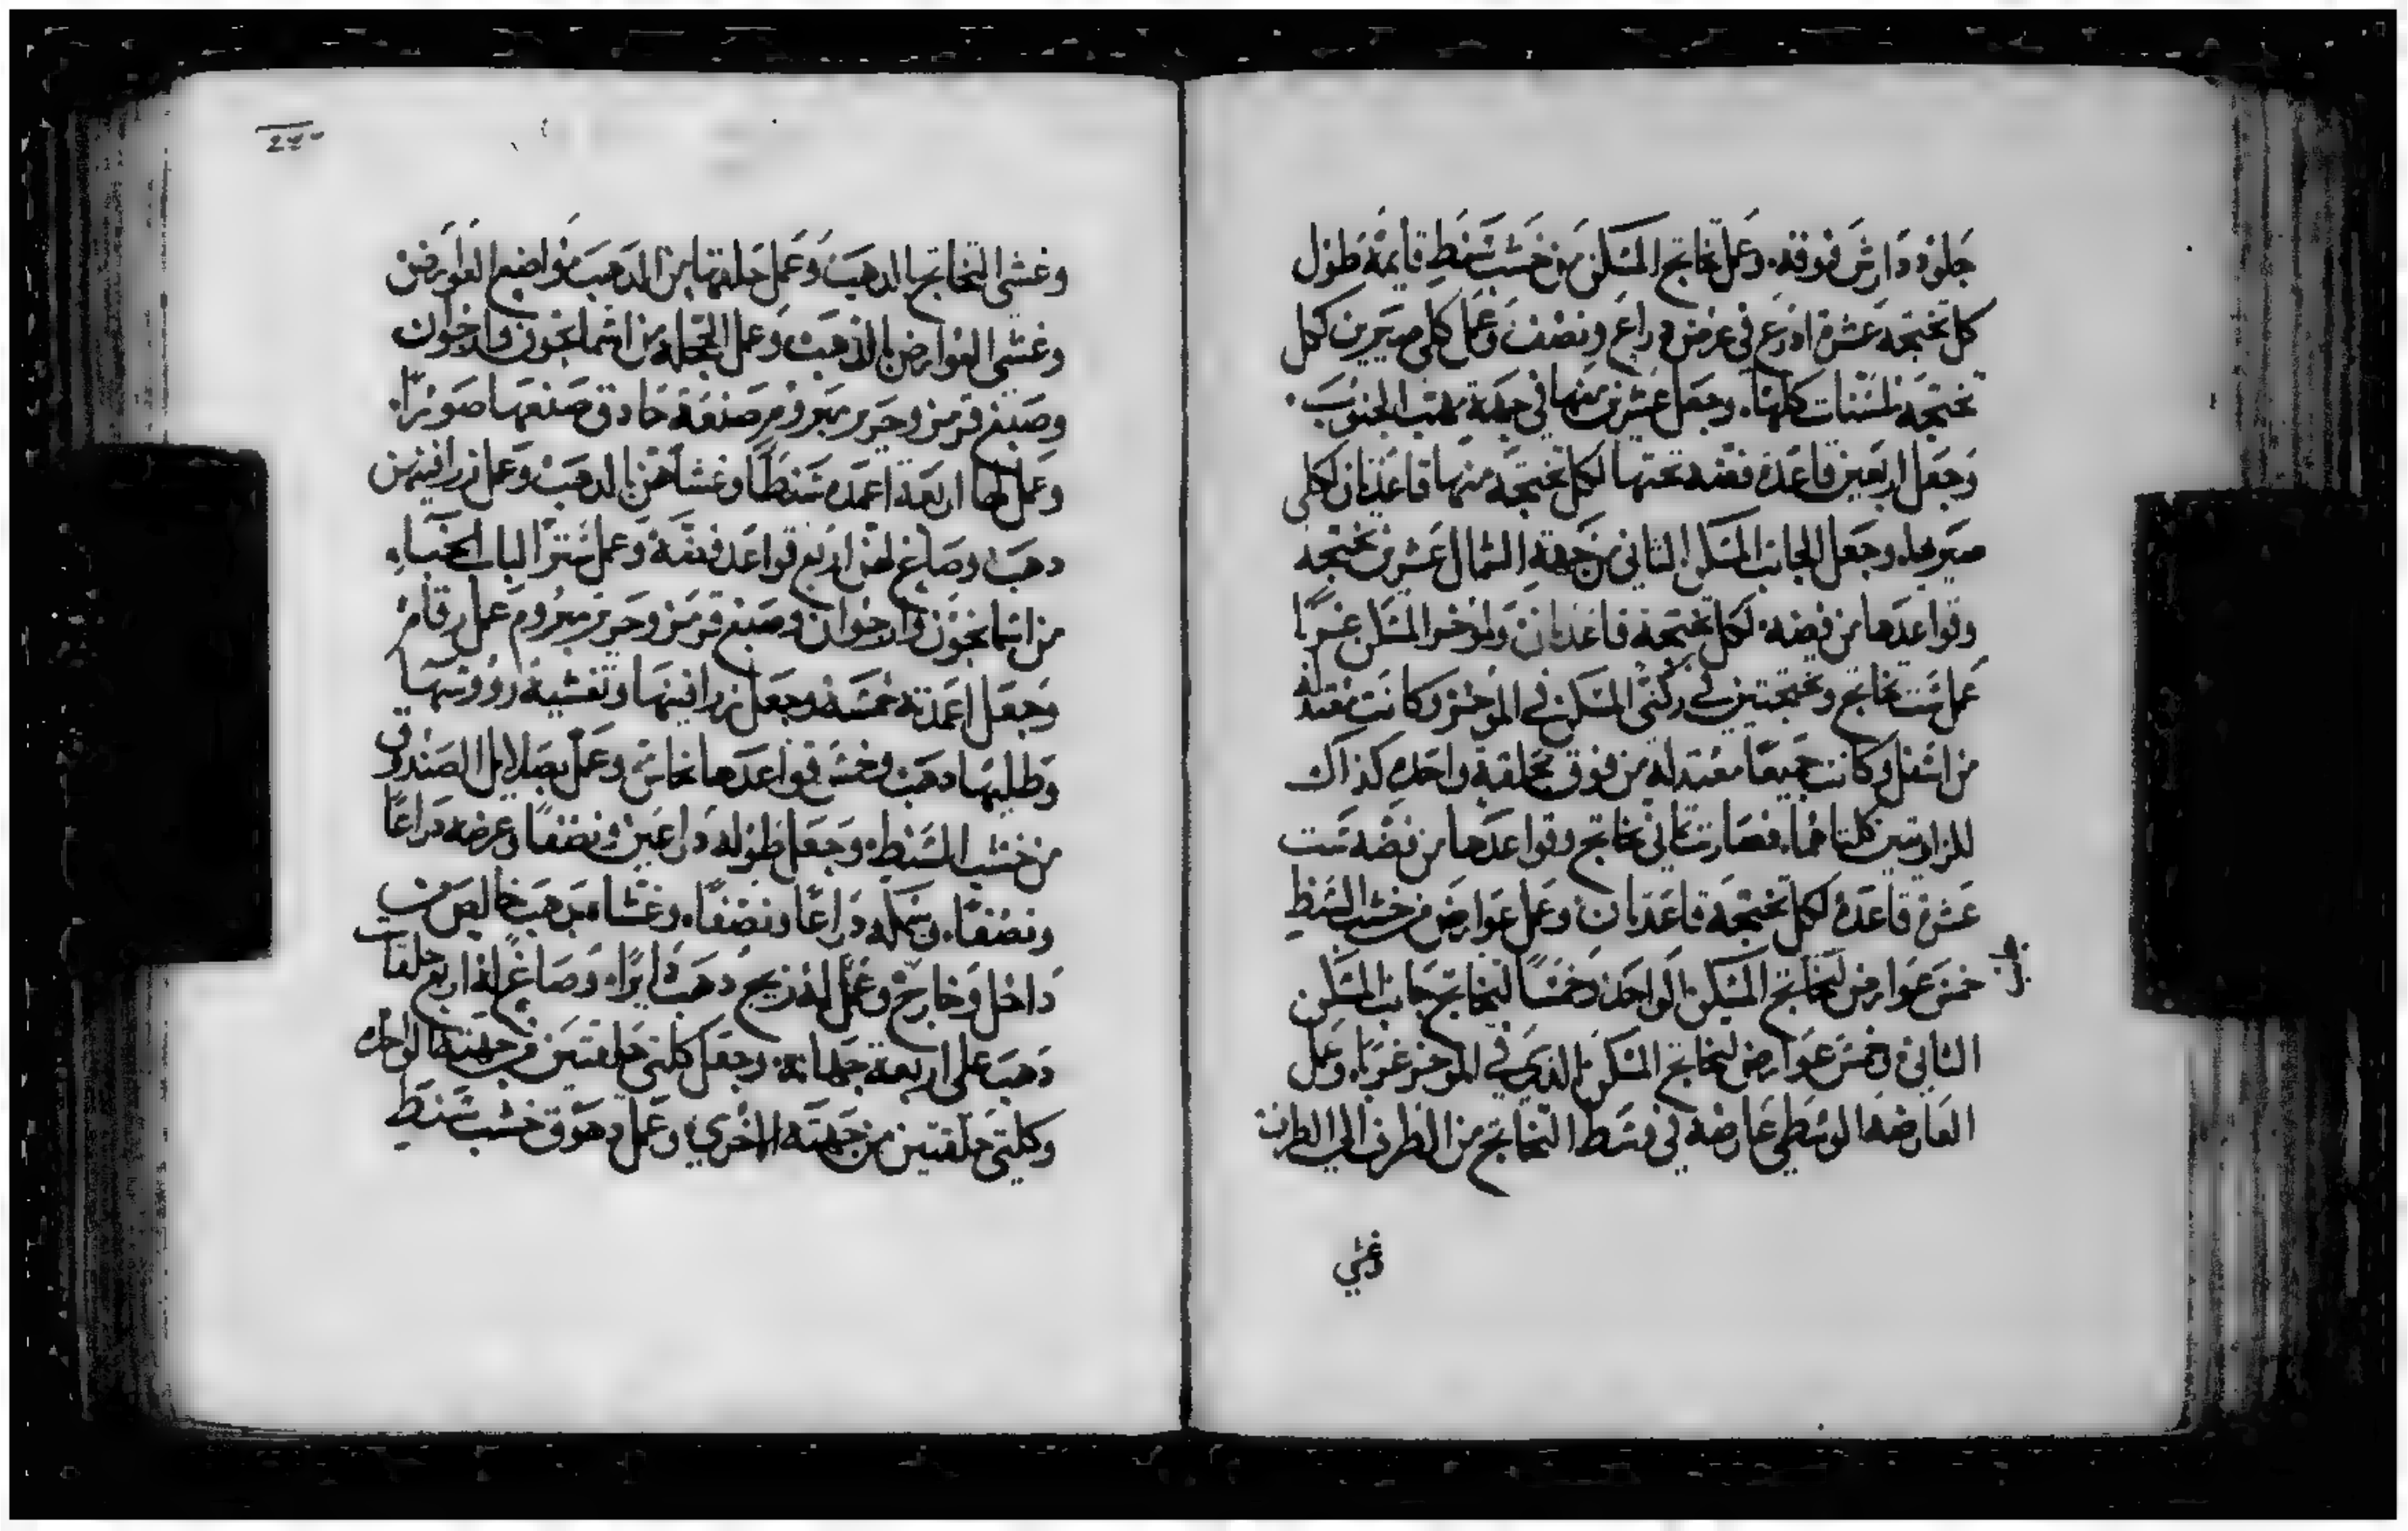 جلود دارش فوقه. وعمل تخاتج المسكن من خشب شنط قايمة طول
كل تختجة عشرة ادرع في عرض دراع ونصف وعمل كلي صيرين لكل
تختجة لمسنات كلها. وجعل عشرين منها في جهة مهب الجنوب.
وجعل اربعين قاعدة فضه تحتها لكل تختجة منها قاعدتان لكلي
صيريها. وجعل لجانب المسكن التاني من جهة الشمال عشرين تختجه
وقواعدها من فضه. لكل تختجة قاعدتان ولموخر المسكن غربًا
عمل ست تخاتج وتختجتين في ركني المسكن في الموخر وكانت معتدله
من اسفل وكانت جميعًا معتدلة من فوق بحلقة واحده كذاك
للزاويتين كلتاهما. فصارت تماني تخاتج وقواعدها من فضه ست
عشرة قاعدة لكل تختجة قاعدتان وعمل عوارض من خشب الشنط
خمس عوارض لتخاتج المسكن الواحد وخمسًا لتخاتج جانب المسكن
التاني وخمس عوارض لتخاتج المسكن الدي في الموخر غربًا. وعمل
العارضه الوسطي عارضة في وسط التخاتج من الطرف الي الطرف
وغشي
وغشي التخاتج بالدهب وعمل حلقها من الدهب مواضع العوارض
وغشي العوارض بالدهب وعمل الحجلة من اسمانجون وارجوان
وصبغ قرمز وحرير مبروم صنعة حادق صنعها صورًا.
وعمل لها اربعة اعمده شنطًا وغشاهن بالدهب وعمل زرافينهن
دهب وصاغ لهن اربع قواعد فضة وعمل سترًا لباب الخباء
من اسمانجون وارجوان وصبغ قرمز وحرير مبروم عمل رقام
وجعل اعمدته خمسة وجعل زرافينها وتغشية رووسها
وطليها دهب وخمس قواعدها نحاس وعمل بصلايل الصندوق
من خشب الشنط. وجعل طوله دراعين ونصفًا وعرضه دراعًا
ونصفًا. وسمكه دراعًا ونصفًا. وغشاه بدهب خالص من
داخل وخارج وعمل له زيج دهب دايرًا. وصاغ له اربع حلقات
دهب علي اربعة جهاته. وجعل كلتي حلقتين من جهته الواحده
وكلتي حلقتين من جهته الاخري وعمل دهوق خشب شنط